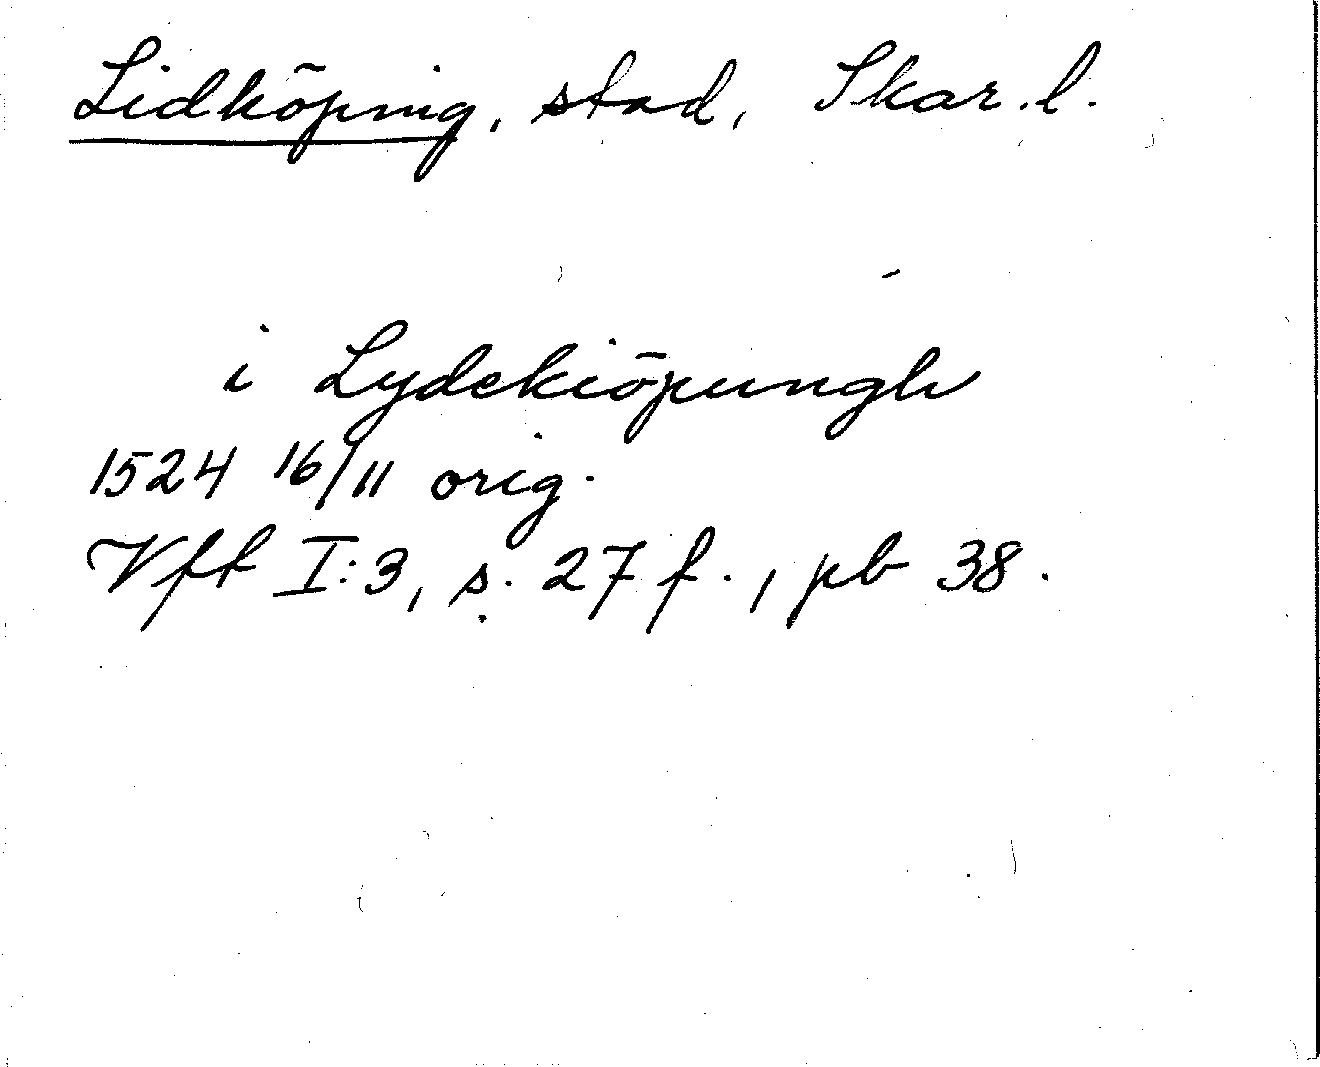 Lidköping, stad, Skar.l.
i Lydekiöpungh
1524 16/11 orig.
Vft I:3, s. 27 f., pb 38.